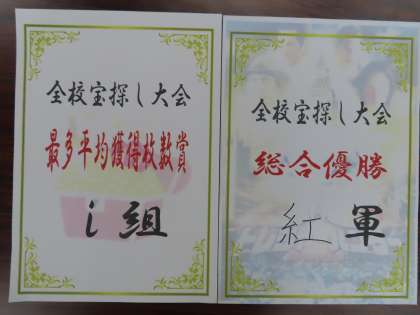 全校宝探し大会
最多平均獲得枚数賞
i組
全校宝探し大会
総合優勝
紅軍